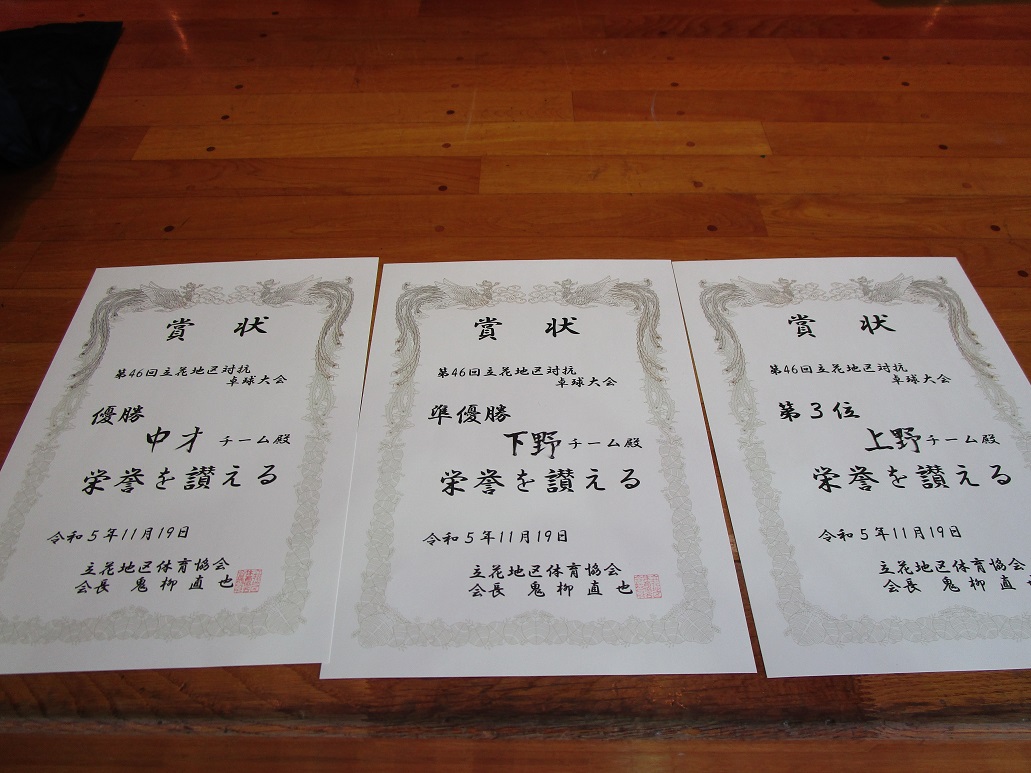 賞状
第46回立花地区対抗
卓球大会
優勝
中才チーム殿
栄誉を讃える
令和5年11月19日
立花地区体育協会
会長 鬼柳直也
賞状
第46回立花地区対抗
卓球大会
準優勝
下野チーム殿
栄誉を讃える
令和5年11月19日
立花地区体育協会
会長 鬼柳直也
賞状
第46回立花地区対抗
卓球大会
第3位
上野チーム殿
栄誉を讃える
令和5年11月19日
立花地区体育協会
会長 鬼柳直